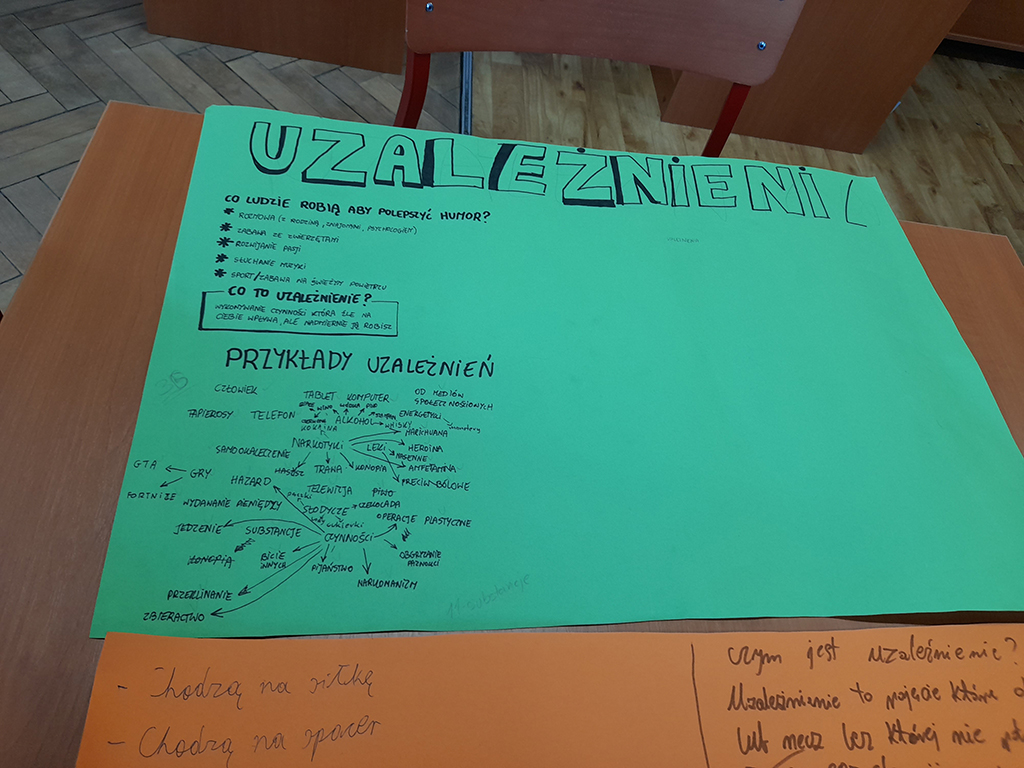 UZALEŻNIENI
CO LUDZIE ROBIĄ ABY POLEPSZYĆ HUMOR?
* ROZMOWA (Z RODZINĄ, ZNAJOMYMI, PSYCHOLOGIEM)
* ZABAWA ZE ZWIERZĘTAMI
* ROZWIJANIE PASJI
* SŁUCHANIE MUZYKI
* SPORT/ZABAWA NA ŚWIEŻYM POWIETRZU
CO TO UZALEŻNIENIE?
WYKONYWANIE CZYNNOŚCI KTÓRA ŹLE NA
CIEBIE WPŁYWA, ALE NADMIERNIE JĄ ROBISZ
PRZYKŁADY UZALEŻNIEŃ
CZŁOWIEK
TABLET KOMPUTER
OD MEDIÓW
SPOŁECZNOŚCIOWYCH
PAPIEROSY
TELEFON
ALKOHOL
WHISKY
ENERGETYKI
KOKAINA
MARIHUANA
SAMOOKALECZENIE
NARKOTYKI
LEKI
HEROINA
NASENNE
GTA
GRY
HASZSZ
TRAWA
KONOPIA
AMFETAMINA
PRZECIWBÓLOWE
FORTNIZE
HAZARD
TELEWIZJA
PIWO
WYDAWANIE PIENIĘDZY
SŁODYCZE
CZEKOLADA
cukierki
OPERACJE PLASTYCZNE
JEDZENIE
SUBSTANCJE
CZYNNOŚCI
KONOPIA
BICIE
INNYCH
PIJAŃSTWO
OBGRYZANIE
PAZNOKCI
NARKOMANIZM
PRZEKLINANIE
ZBIERACTWO
substancje
- Chodzą na siłkę
- Chodzą na spacer
czym jest uzależnienie?
Uzależnienie to pojęcie które
lub mecz bez której nie